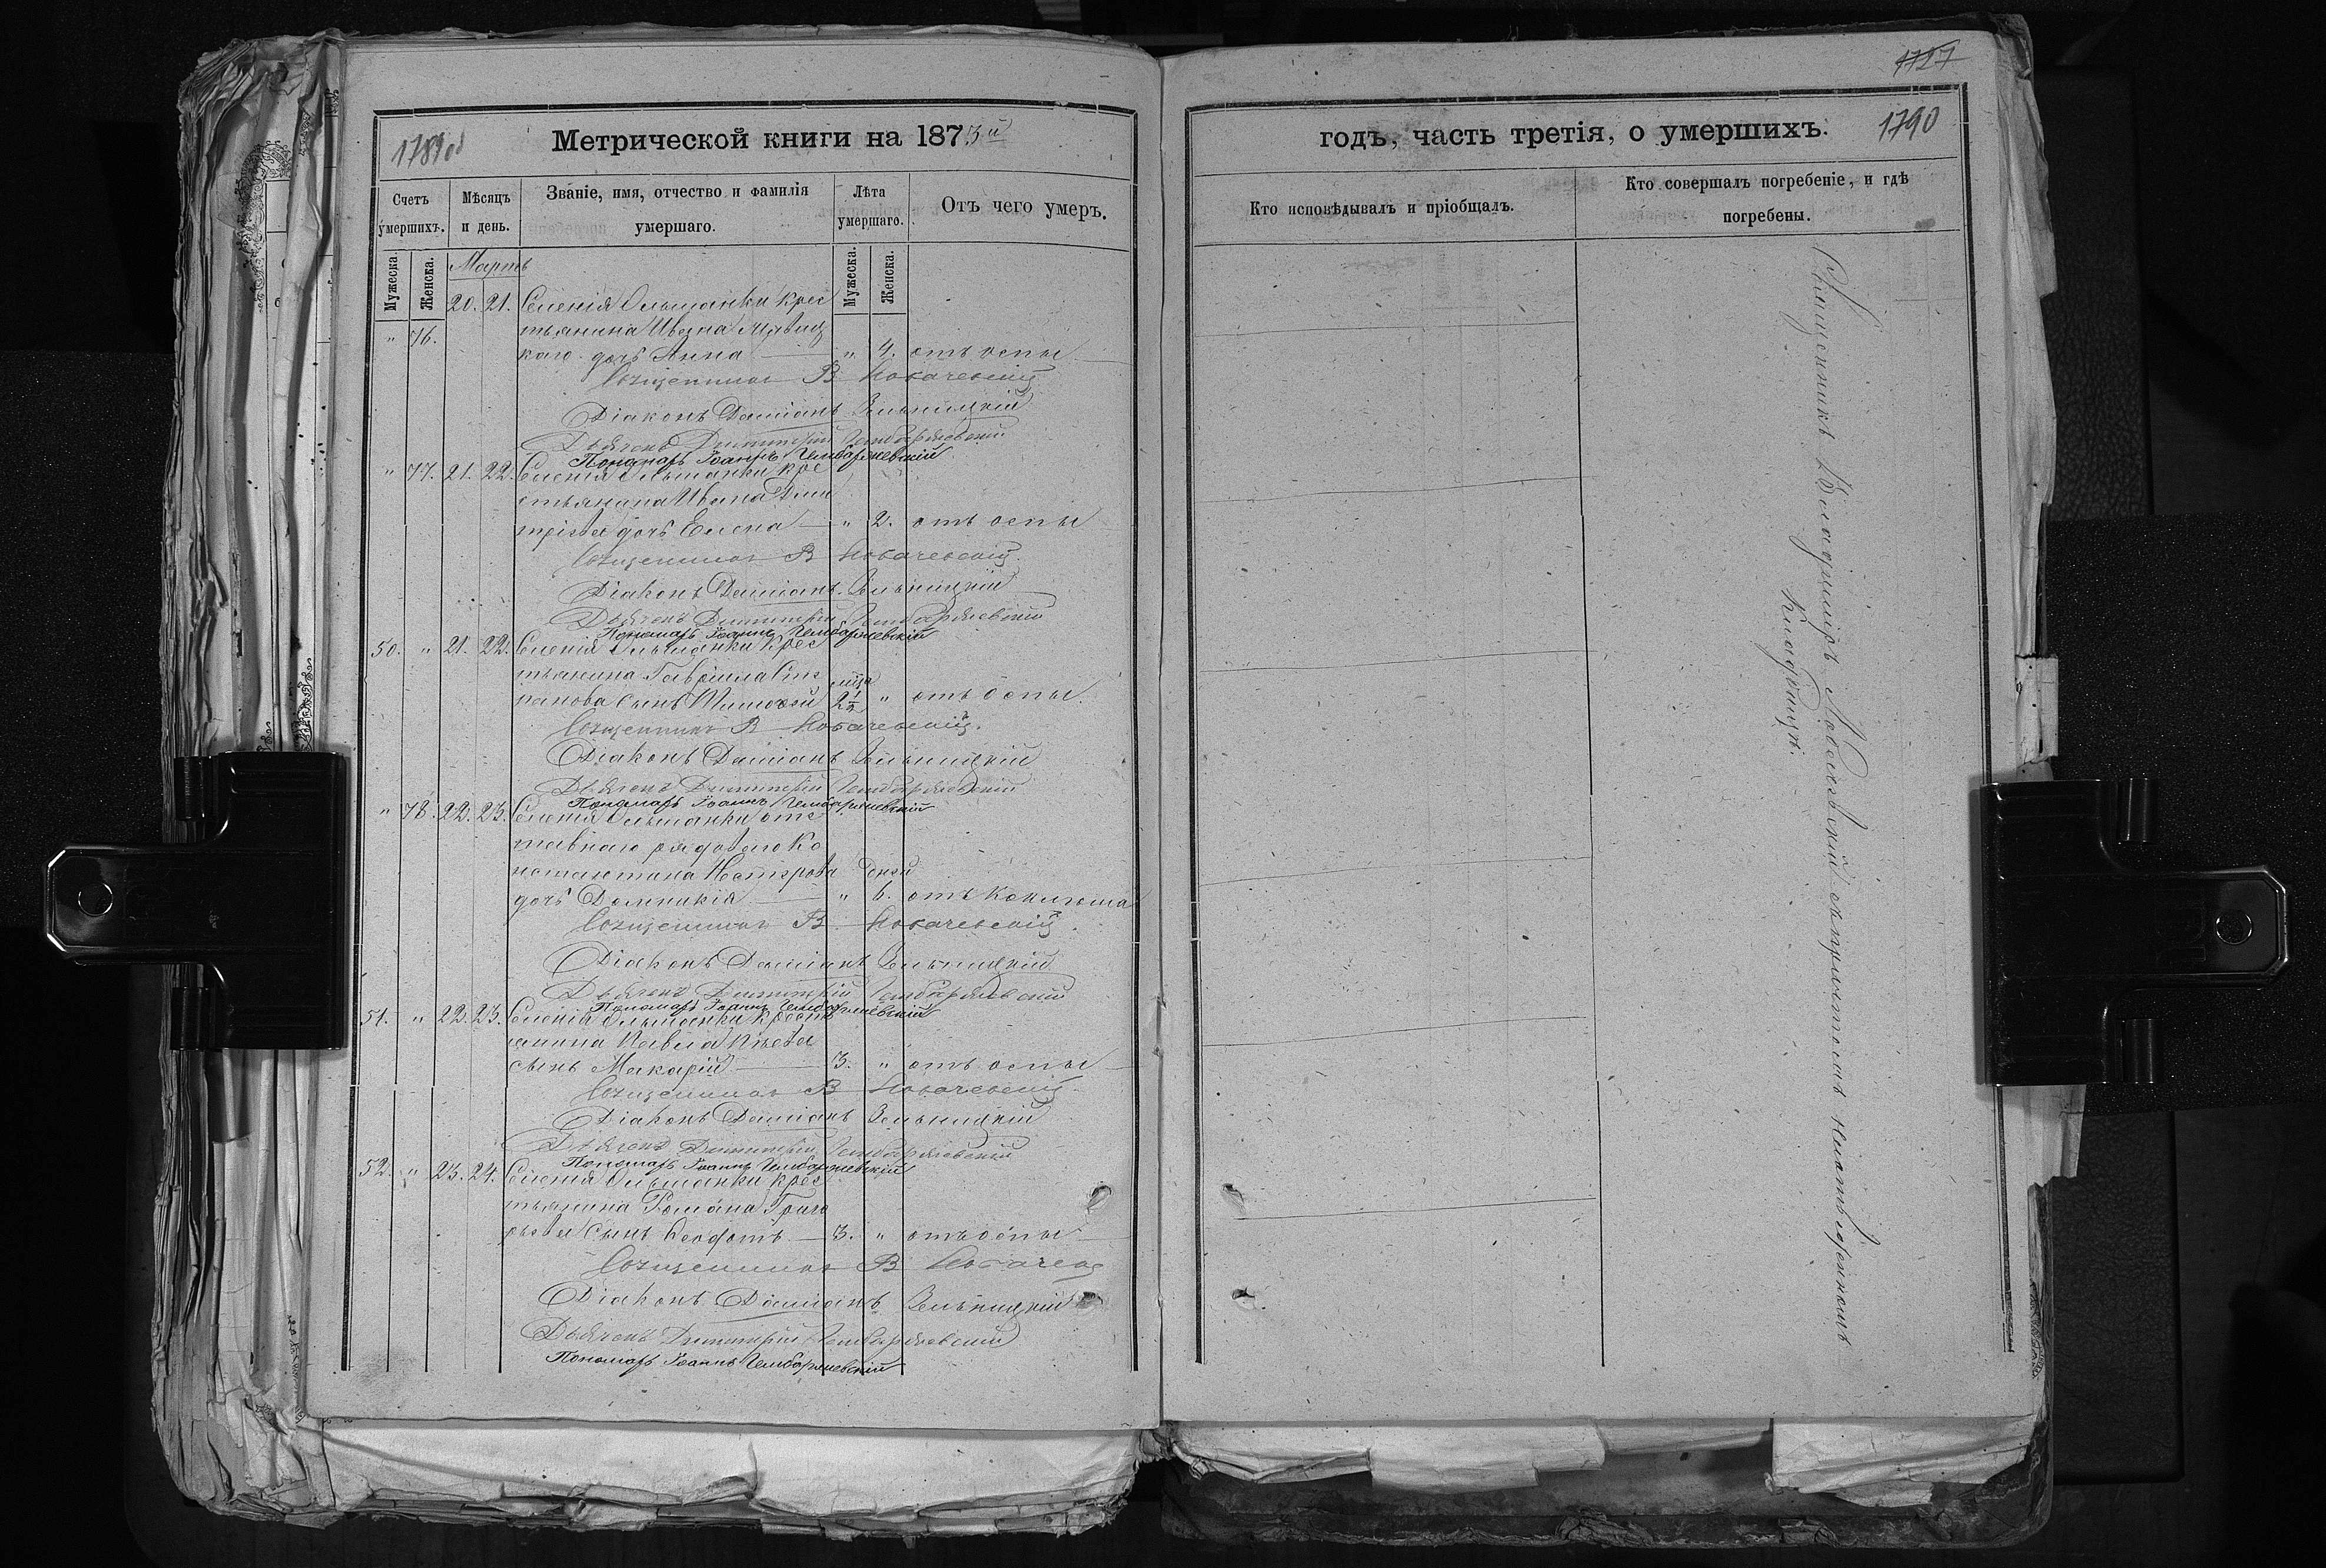 1789об
Метрической книги на 1873й
Счетъ умершихъ.
Мѣсяцъ и день.
Званіе, имя, отчество и фамилія умершаго.
Лѣта умершаго.
Отъ чего умеръ.
Мужеска.
Женска.
Мартъ
Мужеска.
Женска.
20. 21. Селенія Ольшанки крес
" 76. тьянина Ивана
каго дочь Анна — " 4. отъ оспы
Священникъ В Новачевскій
Діаконъ Даміанъ Зельницкій
Дьячекъ Димитрій Чембаржевскій
Пономарь Іоаннъ Чембаржевскій
" 77. 21. 22. Селенія Ольшанки кре
стьянина Ивана Дми
тріева дочь Елена — " 2. отъ оспы
Священникъ В Новачевскій
Діаконъ Даміанъ Зельницкій
Дьячекъ Димитрій Чембаржевскій
Пономарь Іоаннъ Чембаржевскій
50. " 21. 22. Селенія Ольшанки крес
тьянина Гавріила Сте
панова сынъ Тимофей 2½ " отъ оспы
Священникъ В Новачевскій
Діаконъ Даміанъ Зельницкій
Дьячекъ Димитрій Чембаржевскій
Пономарь Іоаннъ Чембаржевскій
" 78. 22. 23. Селенія Ольшанки отс
тавнаго рядоваго Ко
нстантина Нестерова дней
дочь Домникія — " 6. отъ коклюша
Священникъ В Новачевскій
Діаконъ Даміанъ Зельницкій
Дьячекъ Димитрій Чембаржевскій
Пономарь Іоаннъ Чембаржевскій
51. " 22. 23. Селенія Ольшанки кресть
янина Павла
сынъ Макарій — 3. " отъ оспы
Священникъ В Новачевскій
Діаконъ Даміанъ Зельницкій
Дьячекъ Димитрій Чембаржевскій
Пономарь Іоаннъ Чембаржевскій
52. " 23. 24. Селенія Ольшанки крес
тьянина Романа Григо
рьева сынъ Феодотъ — 3. " отъ оспы
Священникъ В
Діаконъ Даміанъ Зельницкій
Дьячекъ Димитрій Чембаржевскій
Пономарь Іоаннъ Чембаржевскій
1727
годъ, часть третія, о умершихъ.
1790
Кто исповѣдывалъ и пріобщалъ.
Кто совершалъ погребеніе, и гдѣ погребены.
Священникъ Владиміръ Новачевскій съ причтомъ на отведенномъ
кладбищѣ.